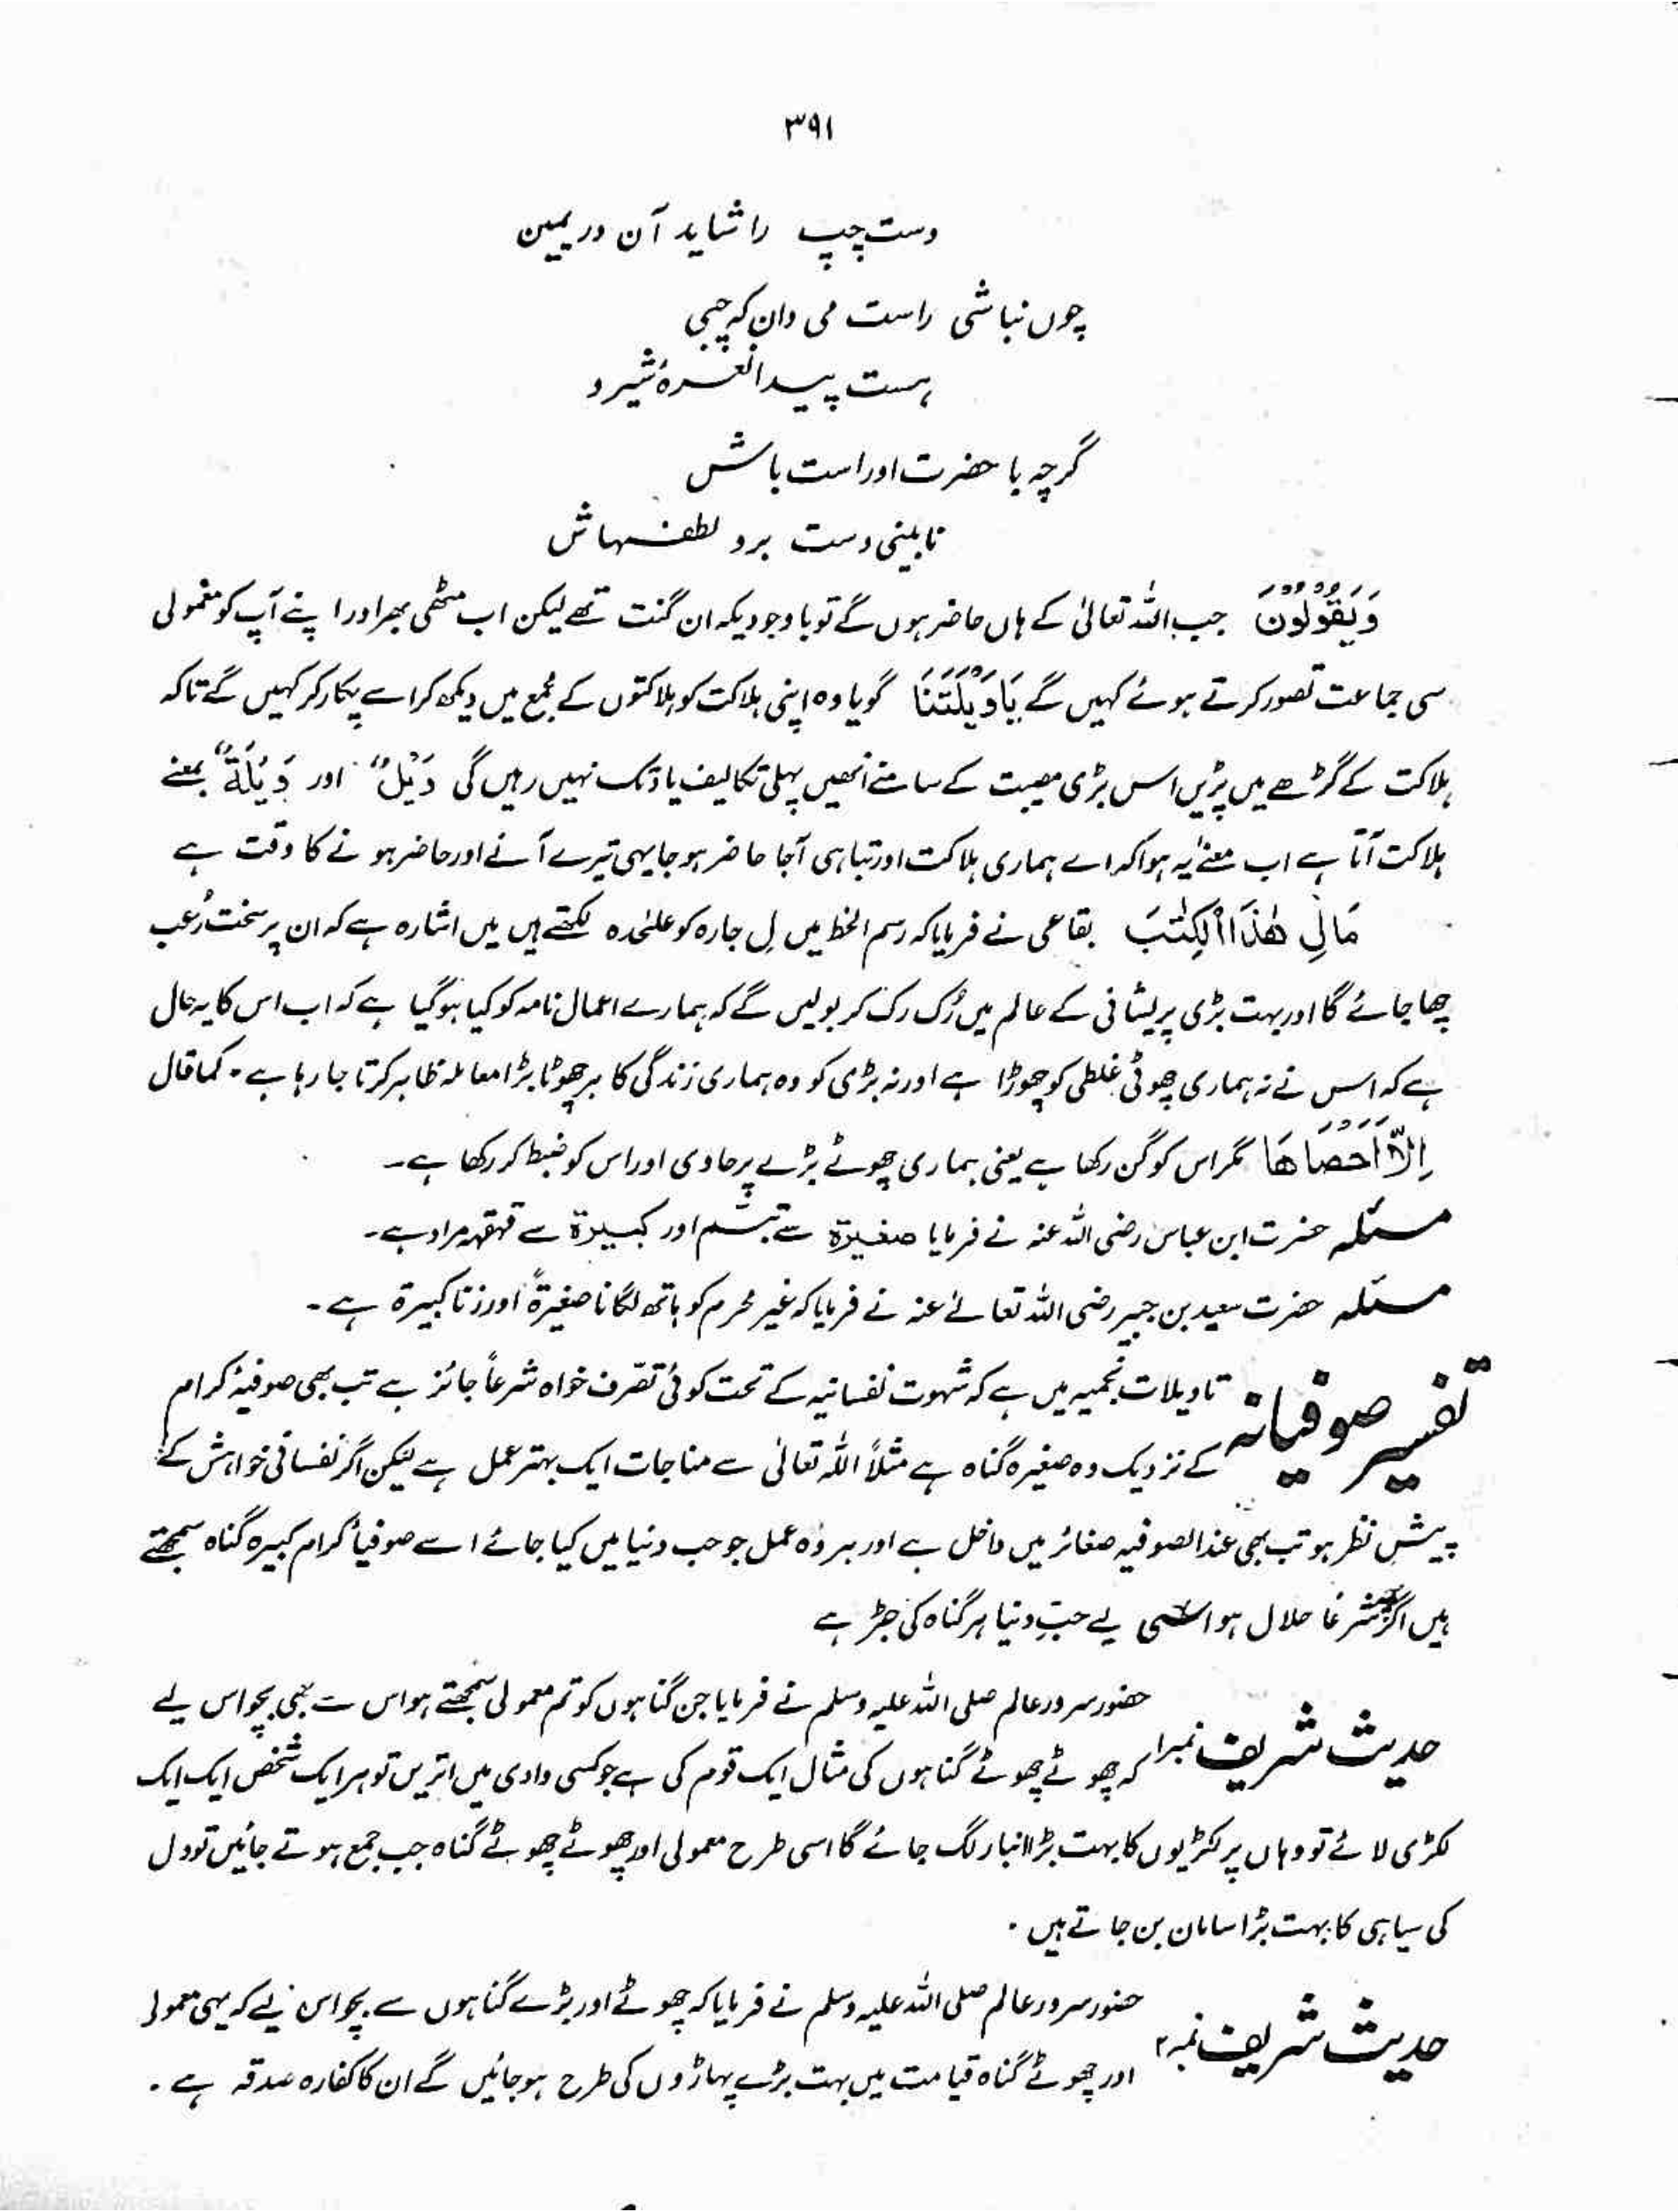 ۳۹۱
دست چپ را شاید آن در یمین
چوں نباشی راست می دان کہ چپی
ہست پیدا نعرۂ شیر و
گرچہ با حضرت او راست باش
تا بینی دست برد لطفہاش
وَيَقُولُونَ جب اللہ تعالیٰ کے ہاں حاضر ہوں گے تو باوجودیکہ ان گنت تھے لیکن اب مٹھی بھر اور اپنے آپ کو معمولی
سی جماعت تصور کرتے ہوئے کہیں گے يَا وَيْلَتَنَا گویا وہ اپنی ہلاکت کو ہلاکتوں کے مجمع میں دیکھ کر اسے پکار کر کہیں گے تاکہ
ہلاکت کے گڑھے میں پڑیں اس بڑی مصیبت کے سامنے انھیں پہلی تکالیف یاد تک نہیں رہیں گی وَيْلٌ اور وَيْلَةٌ بمعنے
ہلاکت آتا ہے اب معنےٰ یہ ہوا کہ اے ہماری ہلاکت اور تباہی آجا حاضر ہو جا یہی تیرے آنے اور حاضر ہونے کا وقت ہے
مَالِ هٰذَا الْكِتٰبِ بقاعی نے فرمایا کہ رسم الخط میں لِ جارہ کو علیٰحدہ لکھتے ہیں میں اشارہ ہے کہ ان پر سخت رُعب
چھا جائے گا اور بہت بڑی پریشانی کے عالم میں رُک رک کر بولیں گے کہ ہمارے اعمال نامہ کو کیا ہو گیا ہے کہ اب اس کا یہ حال
ہے کہ اس نے نہ ہماری چھوٹی غلطی کو چھوڑا ہے اور نہ بڑی کو وہ ہماری زندگی کا ہر چھوٹا بڑا معاملہ ظاہر کرتا جا رہا ہے۔ کما قال
اِلَّا اَحْصَاهَا مگر اس کو گن رکھا ہے یعنی ہماری چھوٹے بڑے پر حاوی اور اس کو ضبط کر رکھا ہے۔
مسئلہ حضرت ابن عباس رضی اللہ عنہ نے فرمایا صغیرۃ سے تبسّم اور کبیرۃ سے قہقہہ مراد ہے۔
مسئلہ حضرت سعید بن جبیر رضی اللہ تعالےٰ عنہ نے فرمایا کہ غیر محرم کو ہاتھ لگانا صغیرۃً اور زنا کبیرۃ ہے۔
تفسیر صوفیانہ تاویلات نجمیہ میں ہے کہ شہوت نفسانیہ کے تحت کوئی تصّرف خواہ شرعاً جائز ہے تب بھی صوفیۂ کرام
کے نزدیک وہ صغیرہ گناہ ہے مثلاً اللہ تعالیٰ سے مناجات ایک بہتر عمل ہے لیکن اگر نفسانی خواہش کے
پیشِ نظر ہو تب بھی عند الصوفیہ صغائر میں داخل ہے اور ہر وُہ عمل جو حب دنیا میں کیا جائے اسے صوفیأ کرام کبیرہ گناہ سمجھتے
ہیں اگرچہ شرعًا حلال ہو اسی لیے حبِّ دنیا ہر گناہ کی جڑ ہے
حدیث شریف نمبر۱ حضور سرور عالم صلی اللہ علیہ وسلم نے فرمایا جن گناہوں کو تم معمولی سمجھتے ہو اس سے بھی بچو اس لیے
کہ چھوٹے چھوٹے گناہوں کی مثال ایک قوم کی ہے جو کسی وادی میں اتریں تو ہر ایک شخص ایک ایک
لکڑی لائے تو وہاں پر لکڑیوں کا بہت بڑا انبار لگ جائے گا اسی طرح معمولی اور چھوٹے چھوٹے گناہ جب جمع ہوتے جائیں تو دل
کی سیاہی کا بہت بڑا سامان بن جاتے ہیں۔
حدیث شریف نمبر۲ حضور سرور عالم صلی اللہ علیہ وسلم نے فرمایا کہ چھوٹے اور بڑے گناہوں سے بچو اس لیے کہ یہی معمولی
اور چھوٹے گناہ قیامت میں بہت بڑے پہاڑوں کی طرح ہو جائیں گے ان کا کفارہ صدقہ ہے۔